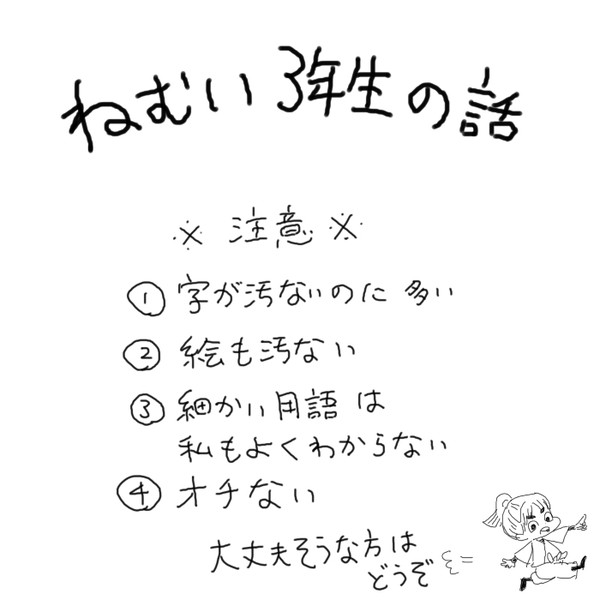 ねむい3年生の話
※ 注意 ※
① 字が汚ないのに多い
② 絵も汚ない
③ 細かい用語は
私もよくわからない
④ オチない
大丈夫そうな方は
どうぞ